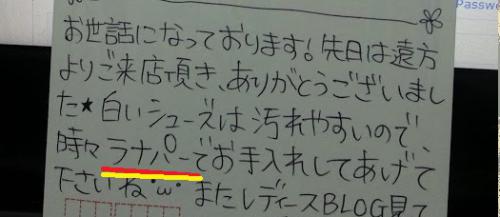 Passwo
お世話になっております!先日は遠方
よりご来店頂き、ありがとうございまし
た★白いシューズは汚れやすいので、
時々ラナパーでお手入れしてあげて
下さいね･ω･ またレディースBLOG見て